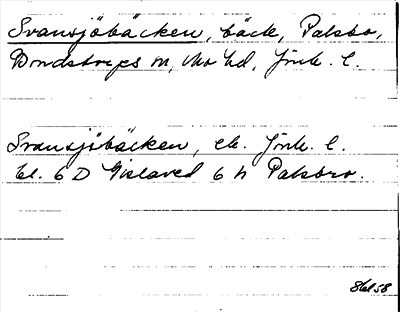 Svansjöbäcken, bäck, Palsbo,
Bondstorps sn, Mo hd, Jönk. l.
Svansjöbäcken, ek. Jönk. l.
bl. 6 D Gislaved 6 h Palsbo.